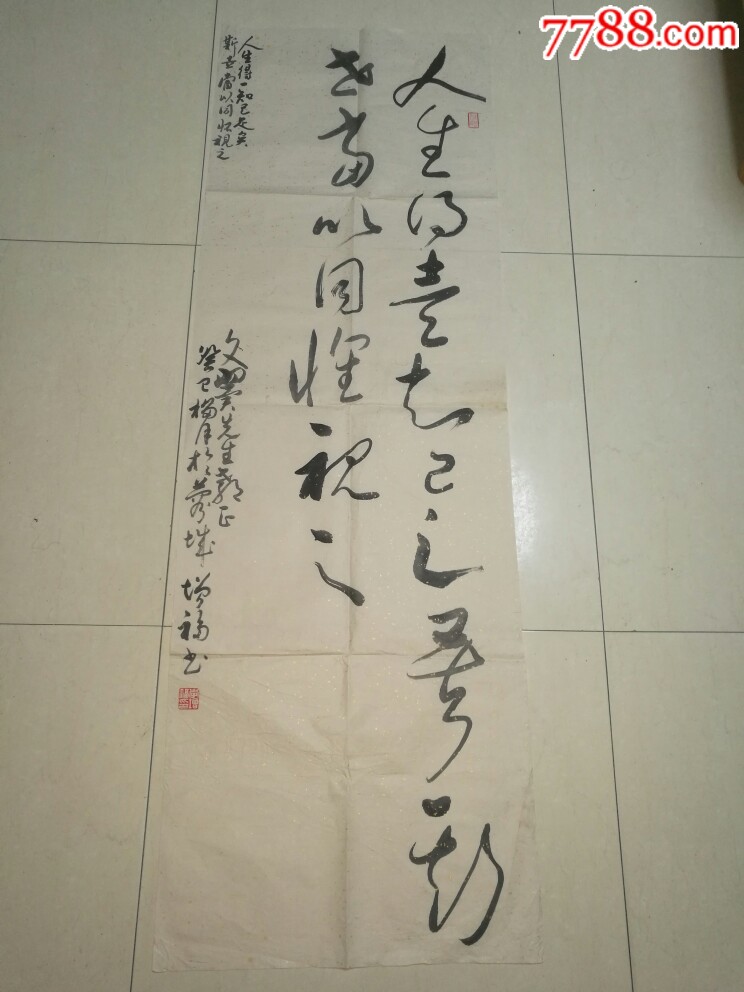 7788.com
人生得壹知己足矣斯
世當以同懷視之
人生得一知己足矣
斯世當以同懷視之
先生 正
癸巳榴月於蓉城 增福书